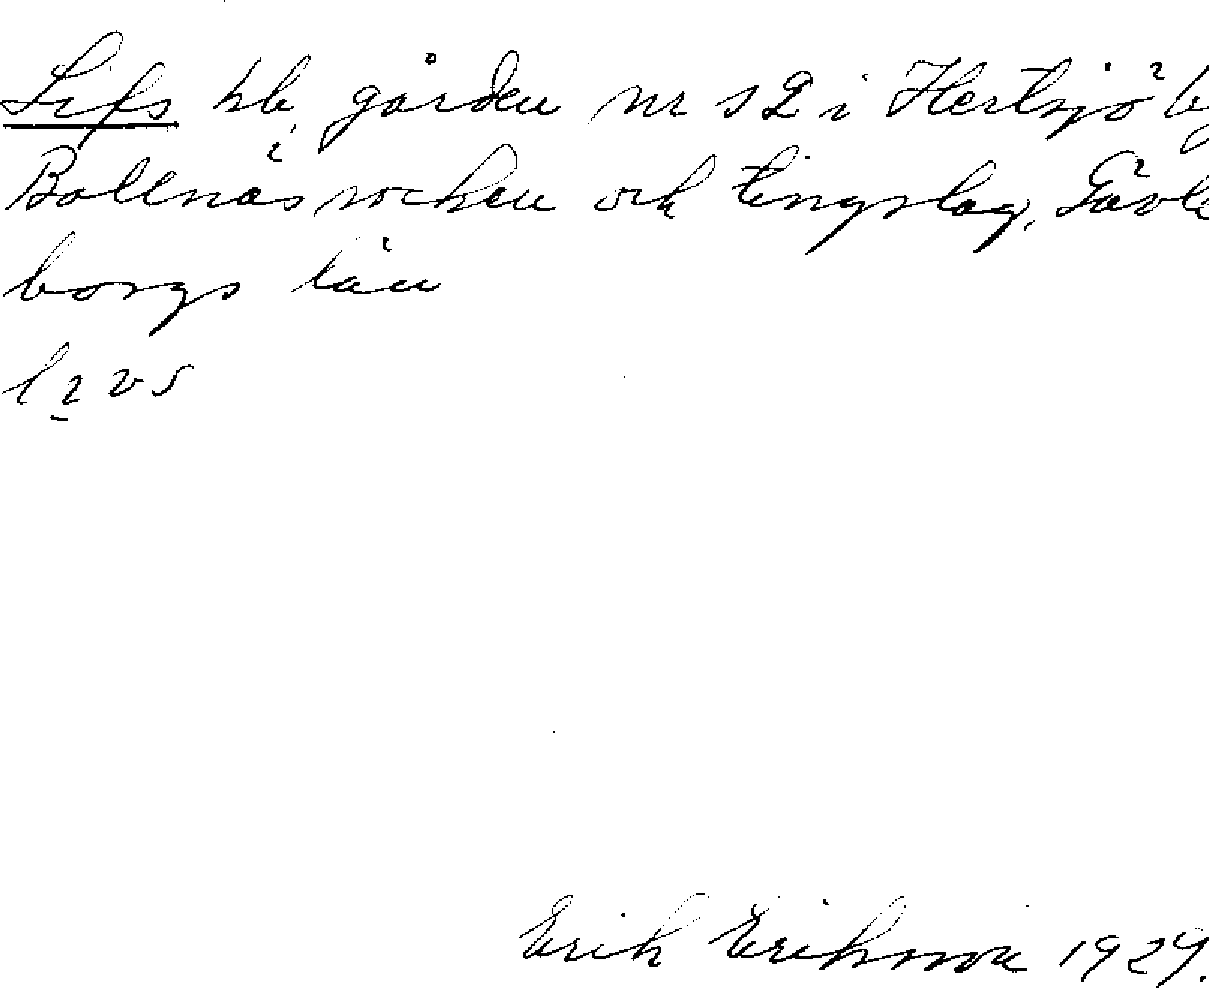 Lifs hb, gården nr 12 i Hertsjö by
Bollnäs socken och tingslag, Gävle
borgs län
Erik Eriksson 1929.